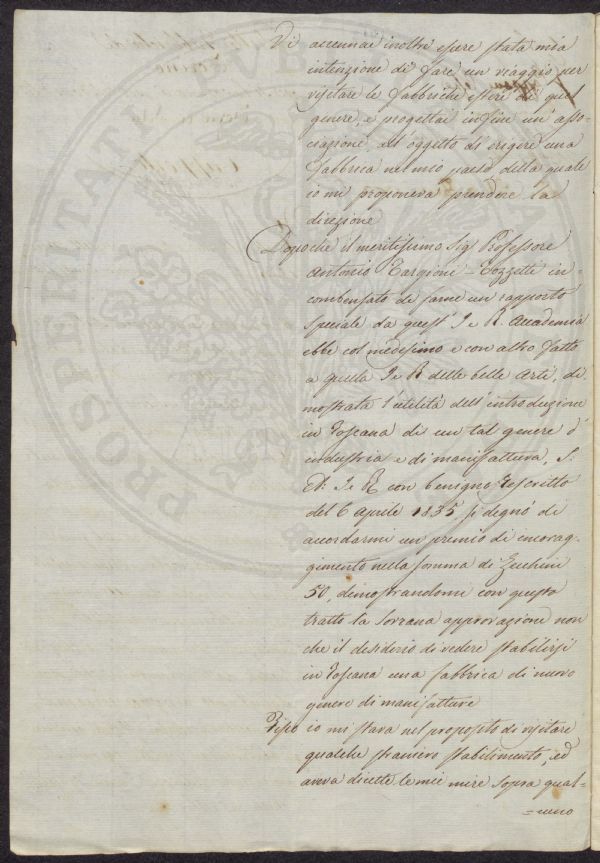 Vi accennai inoltre essere stata mia
intenzione di fare un viaggio per
visitare le fabbriche estere di qual
genere, e progettai infine un' asso-
ciazione all' oggetto di erigere una
fabbrica nel mio paese della quale
io mi proponeva prendere la
direzione
Dopo che il meritissimo Sig Professore
Antonio Targioni-Tozzetti in-
combensato di farne un rapporto
speciale da quest' I e R. Accademia
ebbe col medesimo e con altro fatto
a quella I e R delle belle arti, di-
mostrata l' utilità dell' introduzione
in Toscana di un tal genere d'
industria e di manifattura, S.
A. I e R con benigno rescritto
del 6 aprile 1835, si degnò di
accordarmi un premio di incorag-
gimento nella somma di Zecchini
50, dimostrandomi con questo
tratto la sovrana approvazione non
che il desiderio di vedere stabilirsi
in Toscana una fabbrica di nuovo
genere di manifatture
Fisso io mi stava nel proposito di visitare
qualche straniero stabilimento, ed
aveva dirette le mie mire sopra qual-
=cuno
PROSPERITATI PUB